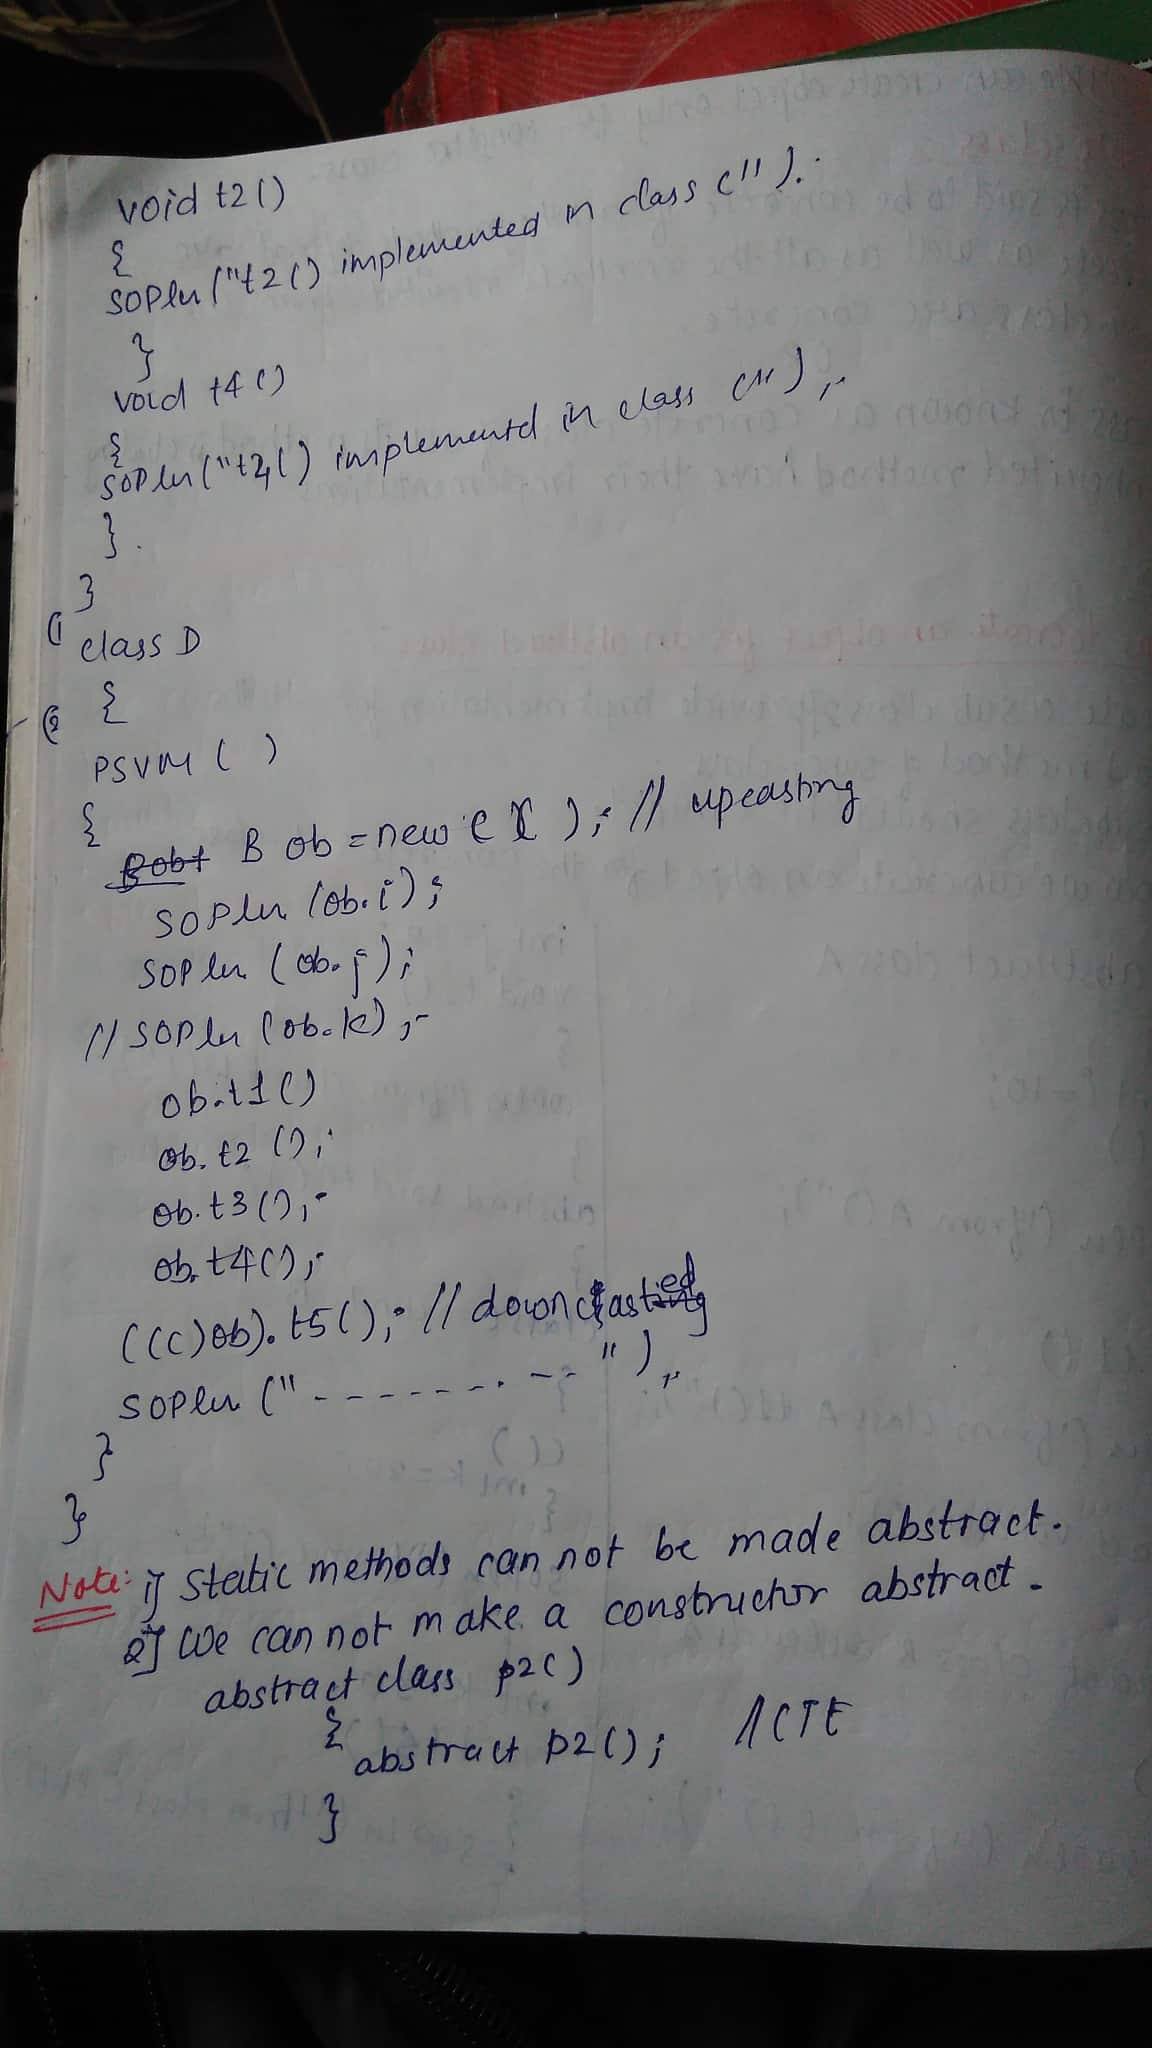 void t2()
{
SOPln("t2() implemented in class C");
}
void t4()
{
SOPln("t4() implementd in class C");
}
}
class D
{
PSVM ( )
{
B ob = new C( ); // upcasting
SOPln (ob.i);
SOPln (ob.j);
// SOPln (ob.k);
ob.t1()
ob. t2 ();
ob.t3();
ob.t4();
(((C)ob). t5(); // downcasted
SOPln ("- - - - - - - - - -");
}
}
Note: 1] Static methods can not be made abstract.
2] We can not make a constructor abstract.
abstract class p2()
{
abstract p2(); //CTE
}